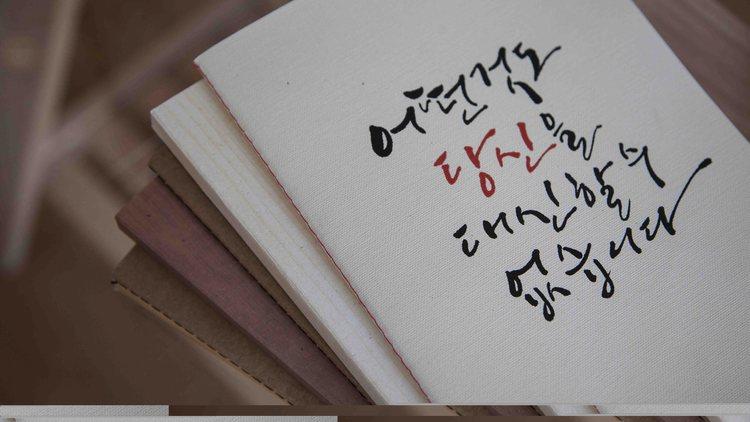 어떤것도
당신을
대신할 수
없습니다